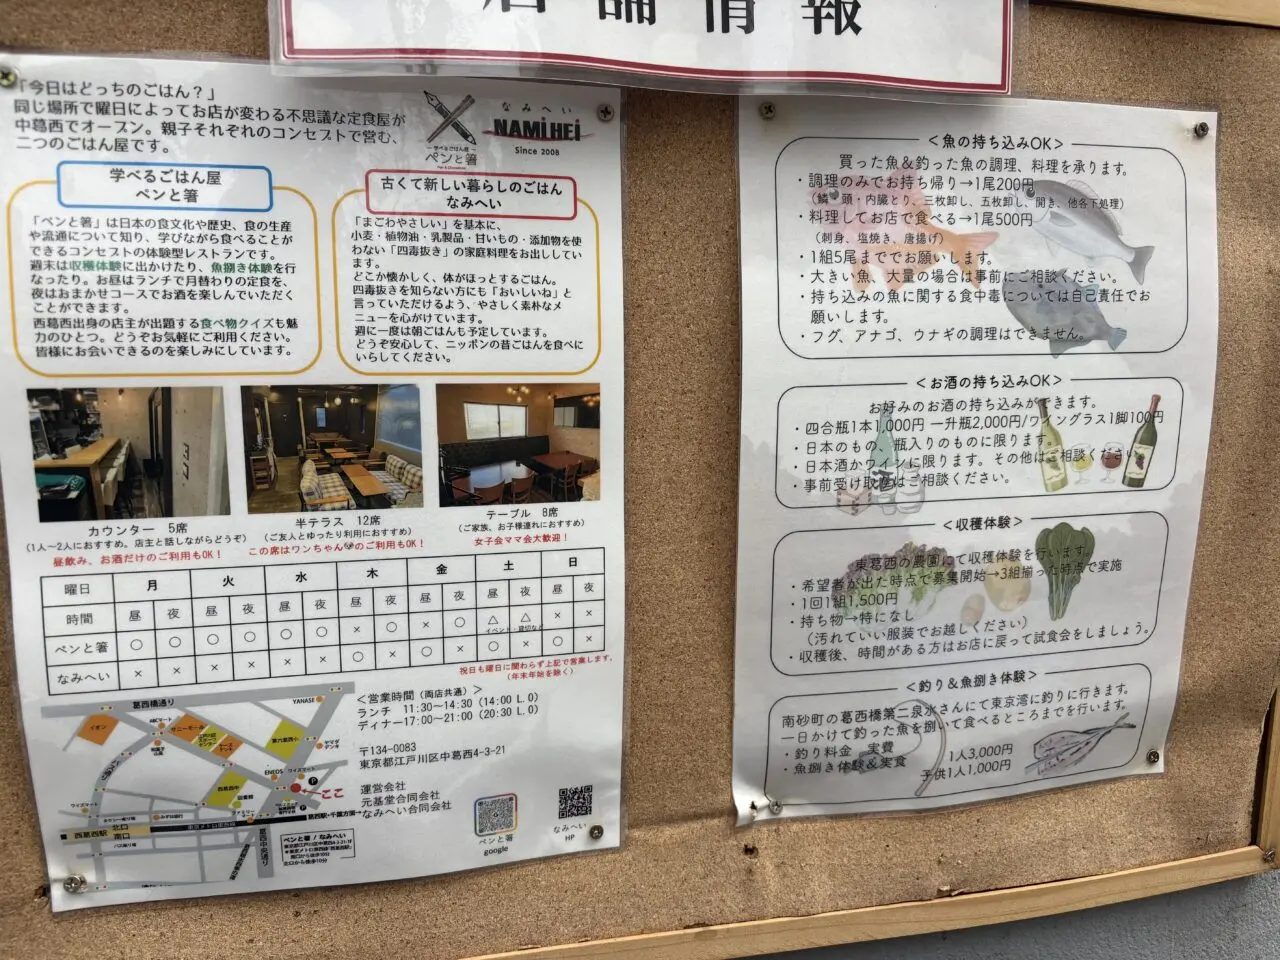 店舗情報
「今日はどっちのごはん？」
同じ場所で曜日によってお店が変わる不思議な定食屋が
中葛西でオープン。親子それぞれのコンセプトで営む、
二つのごはん屋です。
ー学べるごはん屋ー
ペンと箸
なみへい
NAMIHEI
Since 2008
学べるごはん屋
ペンと箸
「ペンと箸」は日本の食文化や歴史、食の生産
や流通について知り、学びながら食べることが
できるコンセプトの体験型レストランです。
週末は収穫体験に出かけたり、魚捌き体験を行
なったり。お昼はランチで月替わりの定食を、
夜はおまかせコースでお酒を楽しんでいただく
ことができます。
西葛西出身の店主が出題する食べ物クイズも魅
力のひとつ。どうぞお気軽にご利用ください。
皆様にお会いできるのを楽しみにしています。
古くて新しい暮らしのごはん
なみへい
「まごわやさしい」を基本に、
小麦・植物油・乳製品・甘いもの・添加物を使
わない「四毒抜き」の家庭料理をお出ししてい
ます。
どこか懐かしく、体がほっとするごはん。
四毒抜きを知らない方にも「おいしいね」と
言っていただけるよう、やさしく素朴なメ
ニューを心がけています。
週に一度は朝ごはんも予定しています。
どうぞ安心して、ニッポンの昔ごはんを食べに
いらしてください。
カウンター 5席
（1人〜2人におすすめ、店主と話しながらどうぞ）
昼飲み、お酒だけのご利用もOK！
半テラス 12席
（ご友人とゆったり利用におすすめ）
この席はワンちゃんのご利用もOK！
テーブル 8席
（ご家族、お子様連れにおすすめ）
女子会ママ会大歓迎！
曜日 月 火 水 木 金 土 日
時間 昼 夜 昼 夜 昼 夜 昼 夜 昼 夜 昼 夜 昼 夜
ペンと箸 ○ ○ ○ ○ ○ ○ × ○ × ○ △ △ × ×
イベント・貸切など
なみへい × × × × × × ○ × ○ × ○ × ○ ×
祝日も曜日に関わらず上記で営業します。
（年末年始を除く）
＜営業時間（両店共通）＞
ランチ 11:30〜14:30（14:00 L.O）
ディナー17:00〜21:00（20:30 L.O）
〒134-0083
東京都江戸川区中葛西4-3-21
運営会社
元基堂合同会社
なみへい合同会社
ペンと箸
google
なみへい
HP
葛西橋通り
YANASE
イオン
ABCマート
サニーモール
第六葛西小
ヤマダ
デンキ
ENEOS
ワイズマート
西葛西中
図書館
ここ
ワイズマート
みずほ銀行
西葛西駅
北口
南口
バス乗り場
葛西中央通り
葛西駅・千葉方面→
ペンと箸 / なみへい
＜魚の持ち込みOK＞
買った魚＆釣った魚の調理、料理を承ります。
・調理のみでお持ち帰り→1尾200円
（鱗・頭・内臓とり、三枚卸し、五枚卸し、開き、他各下処理）
・料理してお店で食べる→1尾500円
（刺身、塩焼き、唐揚げ）
・1組5尾まででお願いします。
・大きい魚、大量の場合は事前にご相談ください。
・持ち込みの魚に関する食中毒については自己責任でお
願いします。
・フグ、アナゴ、ウナギの調理はできません。
＜お酒の持ち込みOK＞
お好みのお酒の持ち込みができます。
・四合瓶1本1,000円 一升瓶2,000円/ワイングラス1脚100円
・日本のもの、瓶入りのものに限ります。
・日本酒かワインに限ります。その他はご相談ください。
・事前受け取りはご相談ください。
＜収穫体験＞
東葛西の農園にて収穫体験を行います。
・希望者が出た時点で募集開始→3組揃った時点で実施
・1回1組1,500円
・持ち物→特になし
（汚れていい服装でお越しください）
・収穫後、時間がある方はお店に戻って試食会をしましょう。
＜釣り＆魚捌き体験＞
南砂町の葛西橋第二泉水さんにて東京湾に釣りに行きます。
一日かけて釣った魚を捌いて食べるところまでを行います。
・釣り料金 実費
・魚捌き体験＆実食 1人3,000円
子供1人1,000円